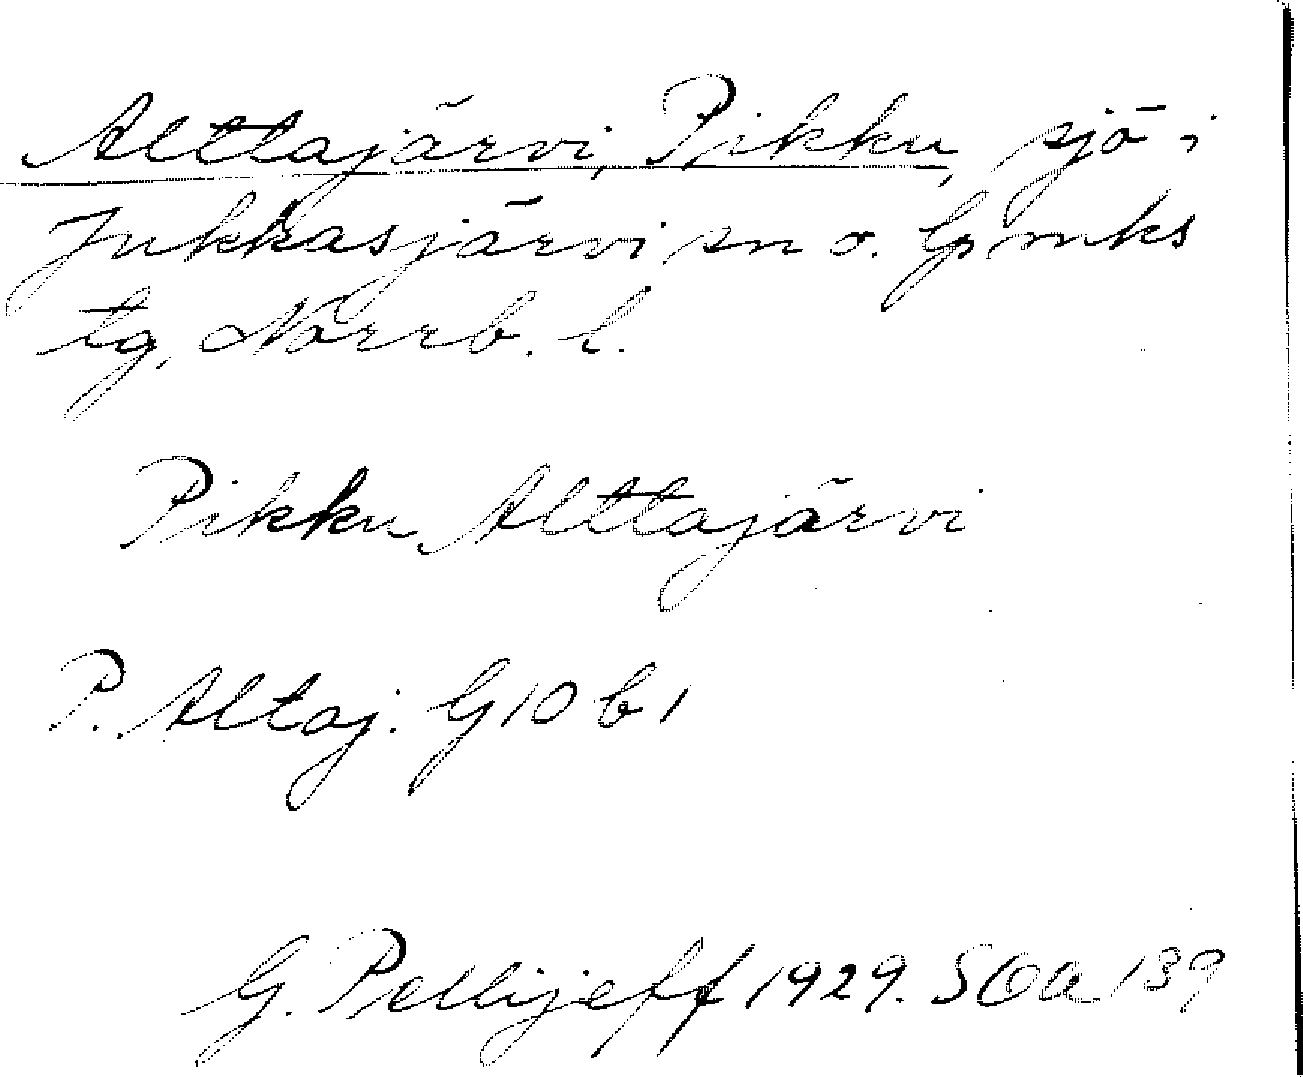 Alttajärvi, Pikku, sjö i
Jukkasjärvi sn o. Gpmks
tg, Norrb. l.
Pikku Alttajärvi
P. Altaj. G 10 b 1
G. Pellijeff 1929. SOA 139